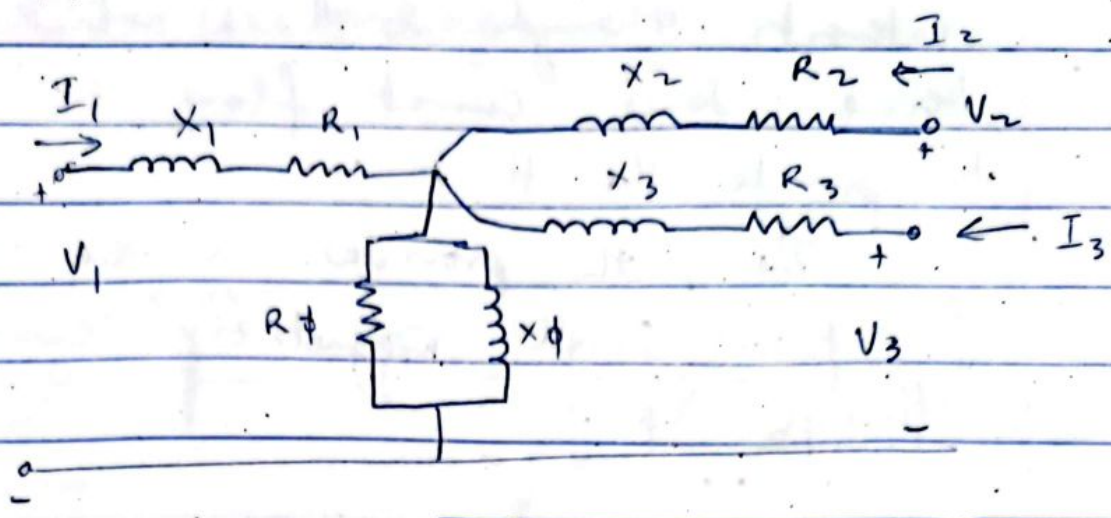 I2
X2 R2 ←
I1
→ X1 R1 V2
+ +
X3 R3
+ ← I3
V1
Rφ Xφ V3
-
-